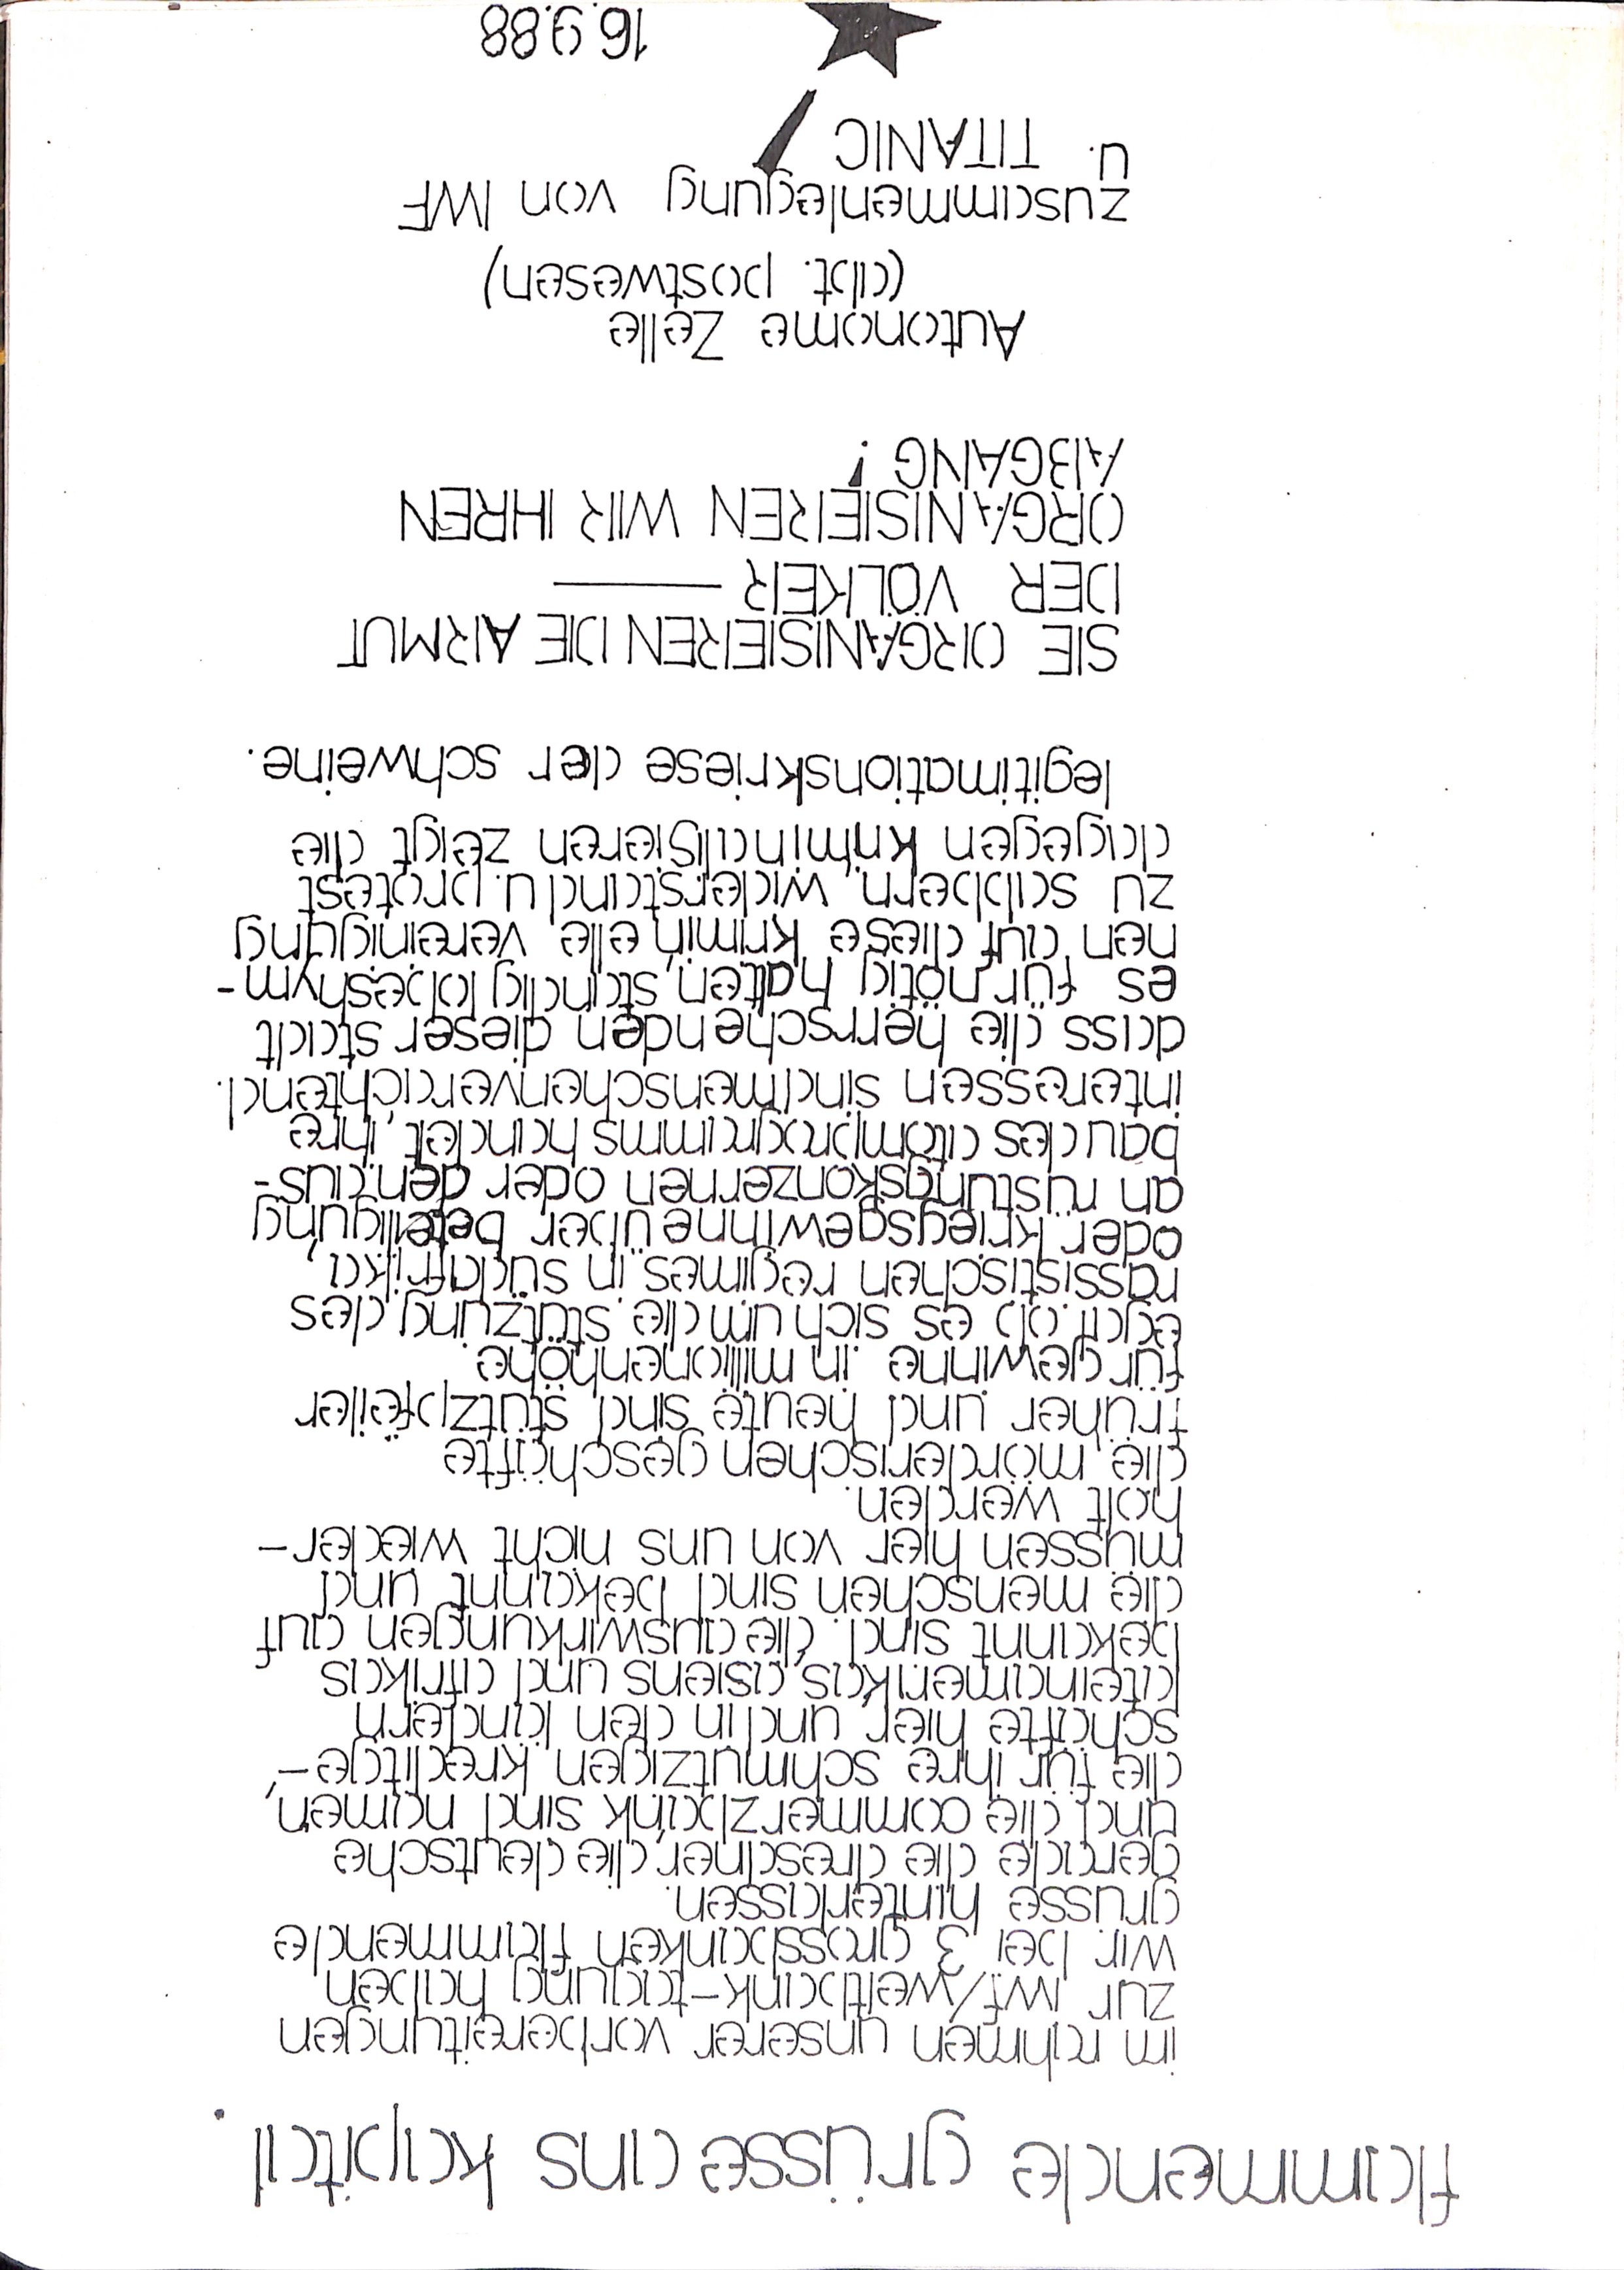 flammende grüsse ans kapital.
im rahmen unserer vorbereitungen
zur iwf/weltbank-tagung haben
wir bei 3 grossbanken flammende
grüsse hinterlassen.
gerade die dresdner, die deutsche
und die commerzbank sind namen,
die für ihre schmutzigen kreditge-
schäfte hier und in den ländern
lateinamerikas, asiens und afrikas
bekannt sind. die auswirkungen auf
die menschen sind bekannt und
müssen hier von uns nicht wieder-
holt werden.
die mörderischen geschäfte
früher und heute sind stützpfeiler
für gewinne in millionenhöhe
egal ob es sich um die stützung des
rassistischen regimes in südafrika,
oder kriegsgewinne über beteiligung
an rüstungskonzernen oder den aus-
bau des atomprogramms handelt, ihre
interessen sind menschenverachtend.
dass die herrschenden dieser stadt
es für nötig halten, ständig lobeshym-
nen auf diese kriminelle vereinigung
zu sabbern, widerstand u. protest
dagegen kriminalisieren zeigt die
legitimationskriese der schweine.
SIE ORGANISIEREN DIE ARMUT
DER VÖLKER ——
ORGANISIEREN WIR IHREN
ABGANG!
Autonome Zelle
(abt. postwesen)
zusammenlegung von IWF
u. TITANIC !
16.9.88